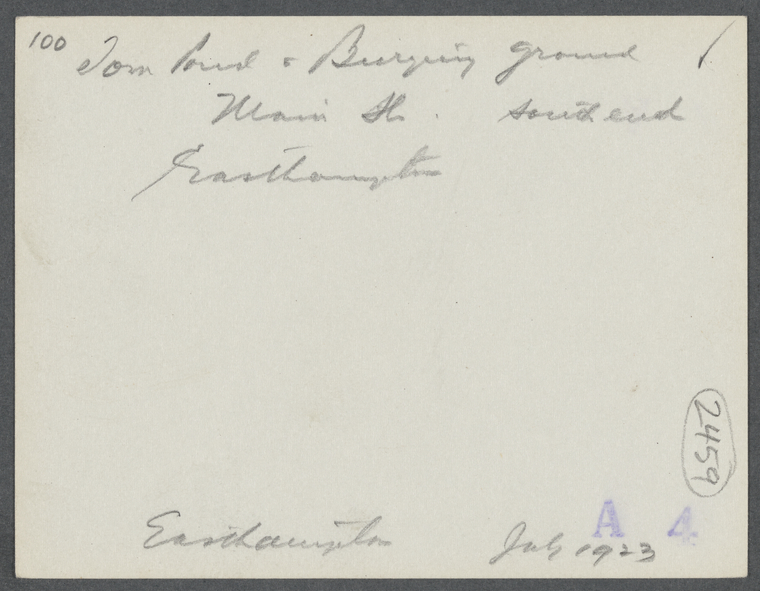 100 Town Pond & Burying ground /
Main St. South end
Easthampton
2459
A 4
Easthampton July 1923